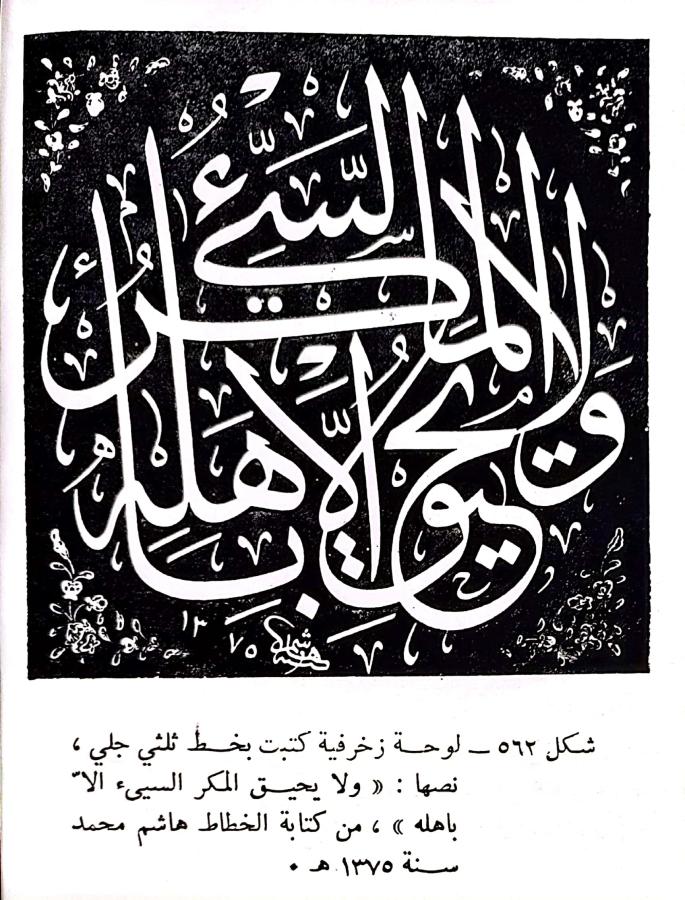 ولا يحيق المكر السّيّئ إلّا بأهله
١٣٧٥
هاشم
شكل ٥٦٢ ــ لوحة زخرفية كتبت بخط ثلثي جلي ،
نصها : « ولا يحيق المكر السيىء الاّ
باهله » ، من كتابة الخطاط هاشم محمد
سنة ١٣٧٥ هـ ٠